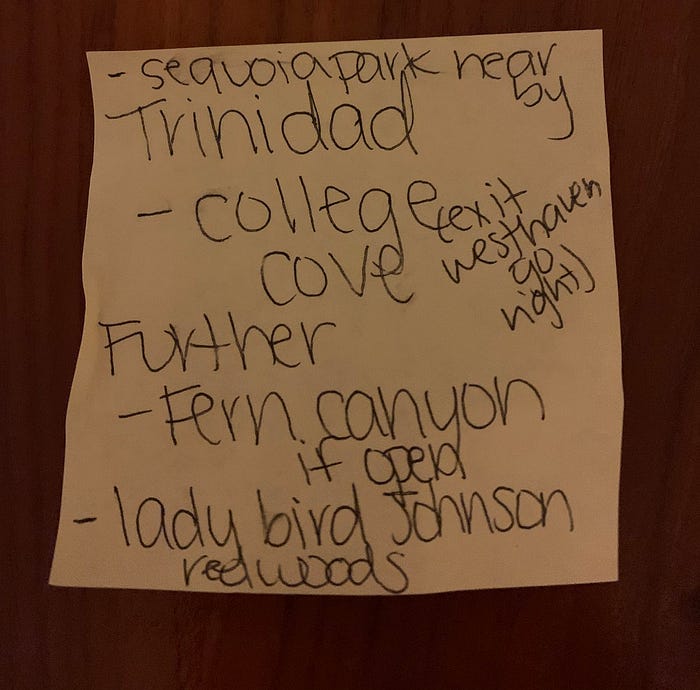 - sequoia park near
by
Trinidad
- college
cove
(exit
westhaven
go
right)
Further
- Fern canyon
if open
- lady bird Johnson
redwoods